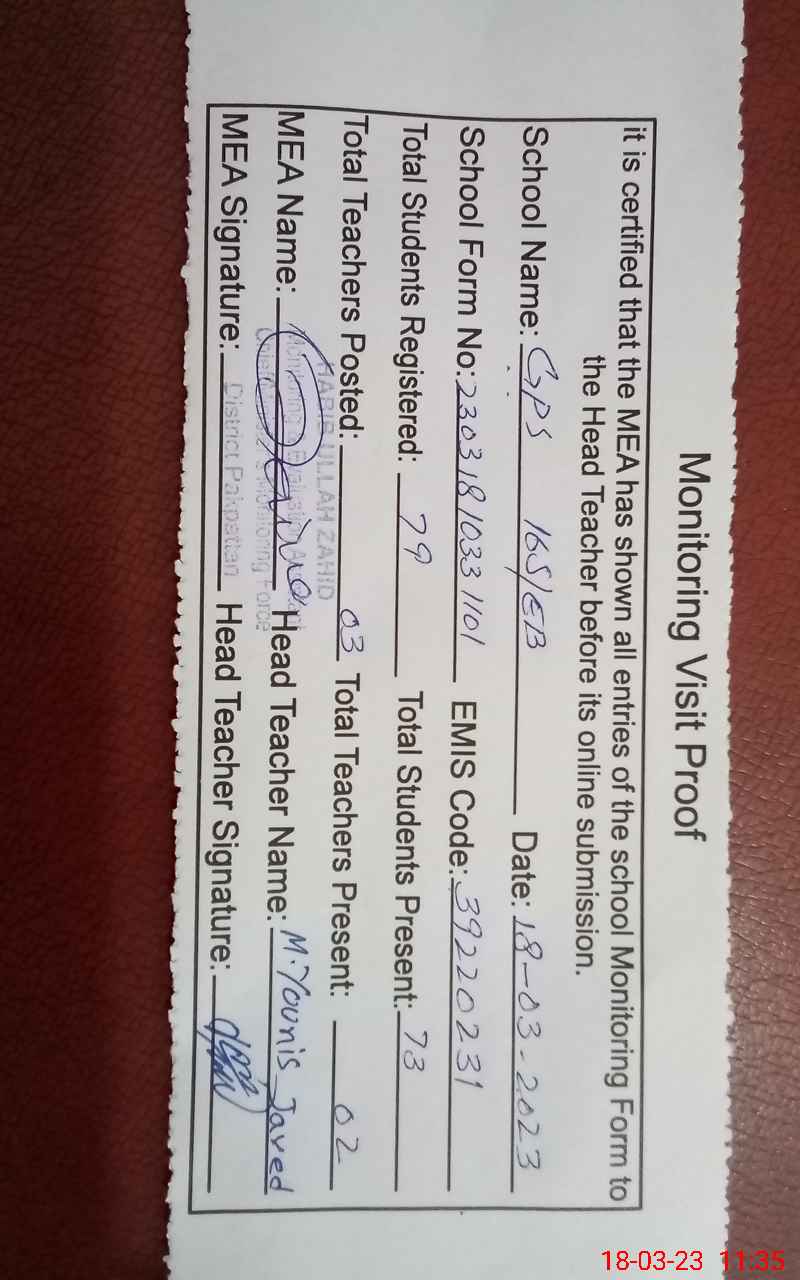 Monitoring Visit Proof
it is certified that the MEA has shown all entries of the school Monitoring Form to
the Head Teacher before its online submission.
School Name: GPS 165/EB Date: 18-03-2023
School Form No: 230318 1033 1101 EMIS Code: 39220231
Total Students Registered: 79 Total Students Present: 73
Total Teachers Posted: 03 Total Teachers Present: 02
HABIB ULLAH ZAHID
MEA Name: Head Teacher Name: M. Younis Javed
Monitoring Force
District Pakpattan
MEA Signature: Head Teacher Signature:
18-03-23 11:35